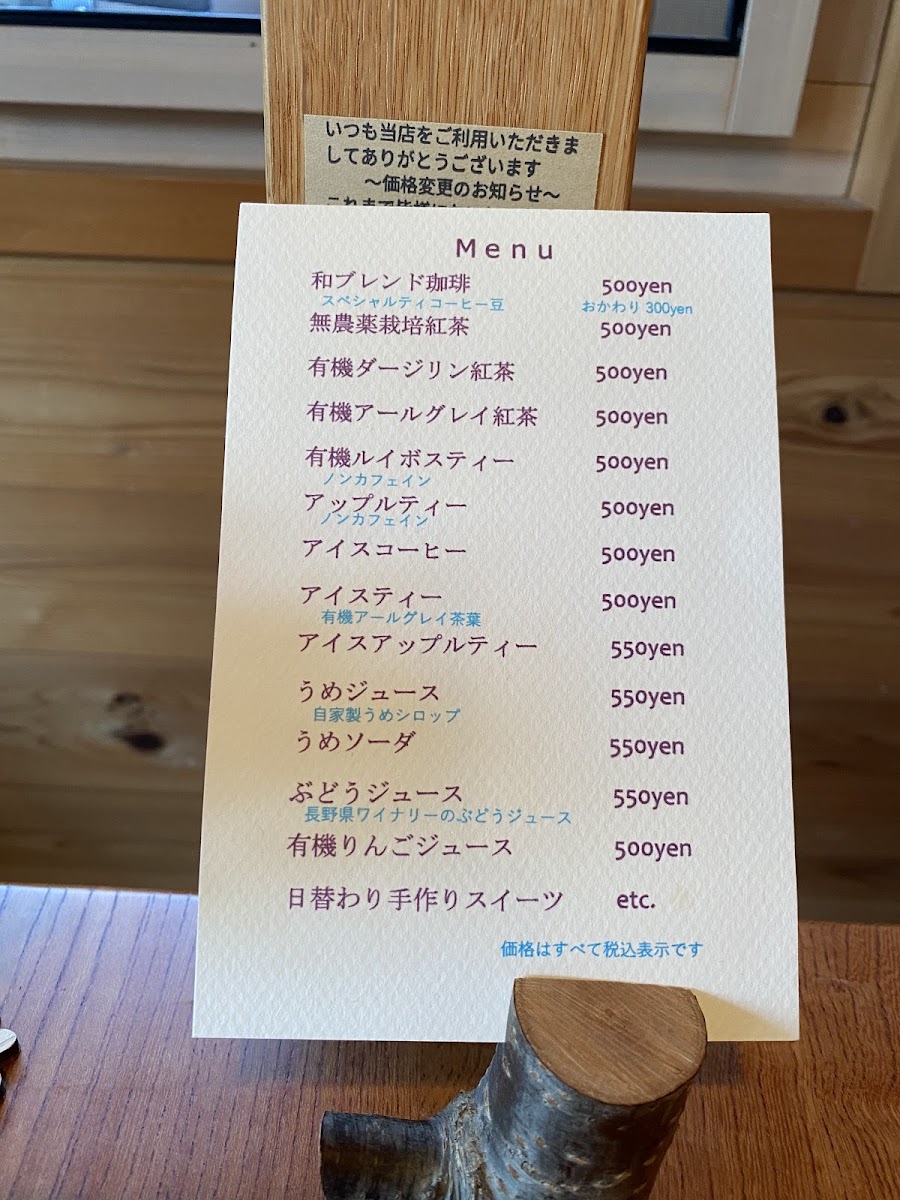 いつも当店をご利用いただきま
してありがとうございます
～価格変更のお知らせ～
Menu
和ブレンド珈琲 500yen
スペシャルティコーヒー豆 おかわり 300yen
無農薬栽培紅茶 500yen
有機ダージリン紅茶 500yen
有機アールグレイ紅茶 500yen
有機ルイボスティー 500yen
ノンカフェイン
アップルティー 500yen
ノンカフェイン
アイスコーヒー 500yen
アイスティー 500yen
有機アールグレイ茶葉
アイスアップルティー 550yen
うめジュース 550yen
自家製うめシロップ
うめソーダ 550yen
ぶどうジュース 550yen
長野県ワイナリーのぶどうジュース
有機りんごジュース 500yen
日替わり手作りスイーツ etc.
価格はすべて税込表示です